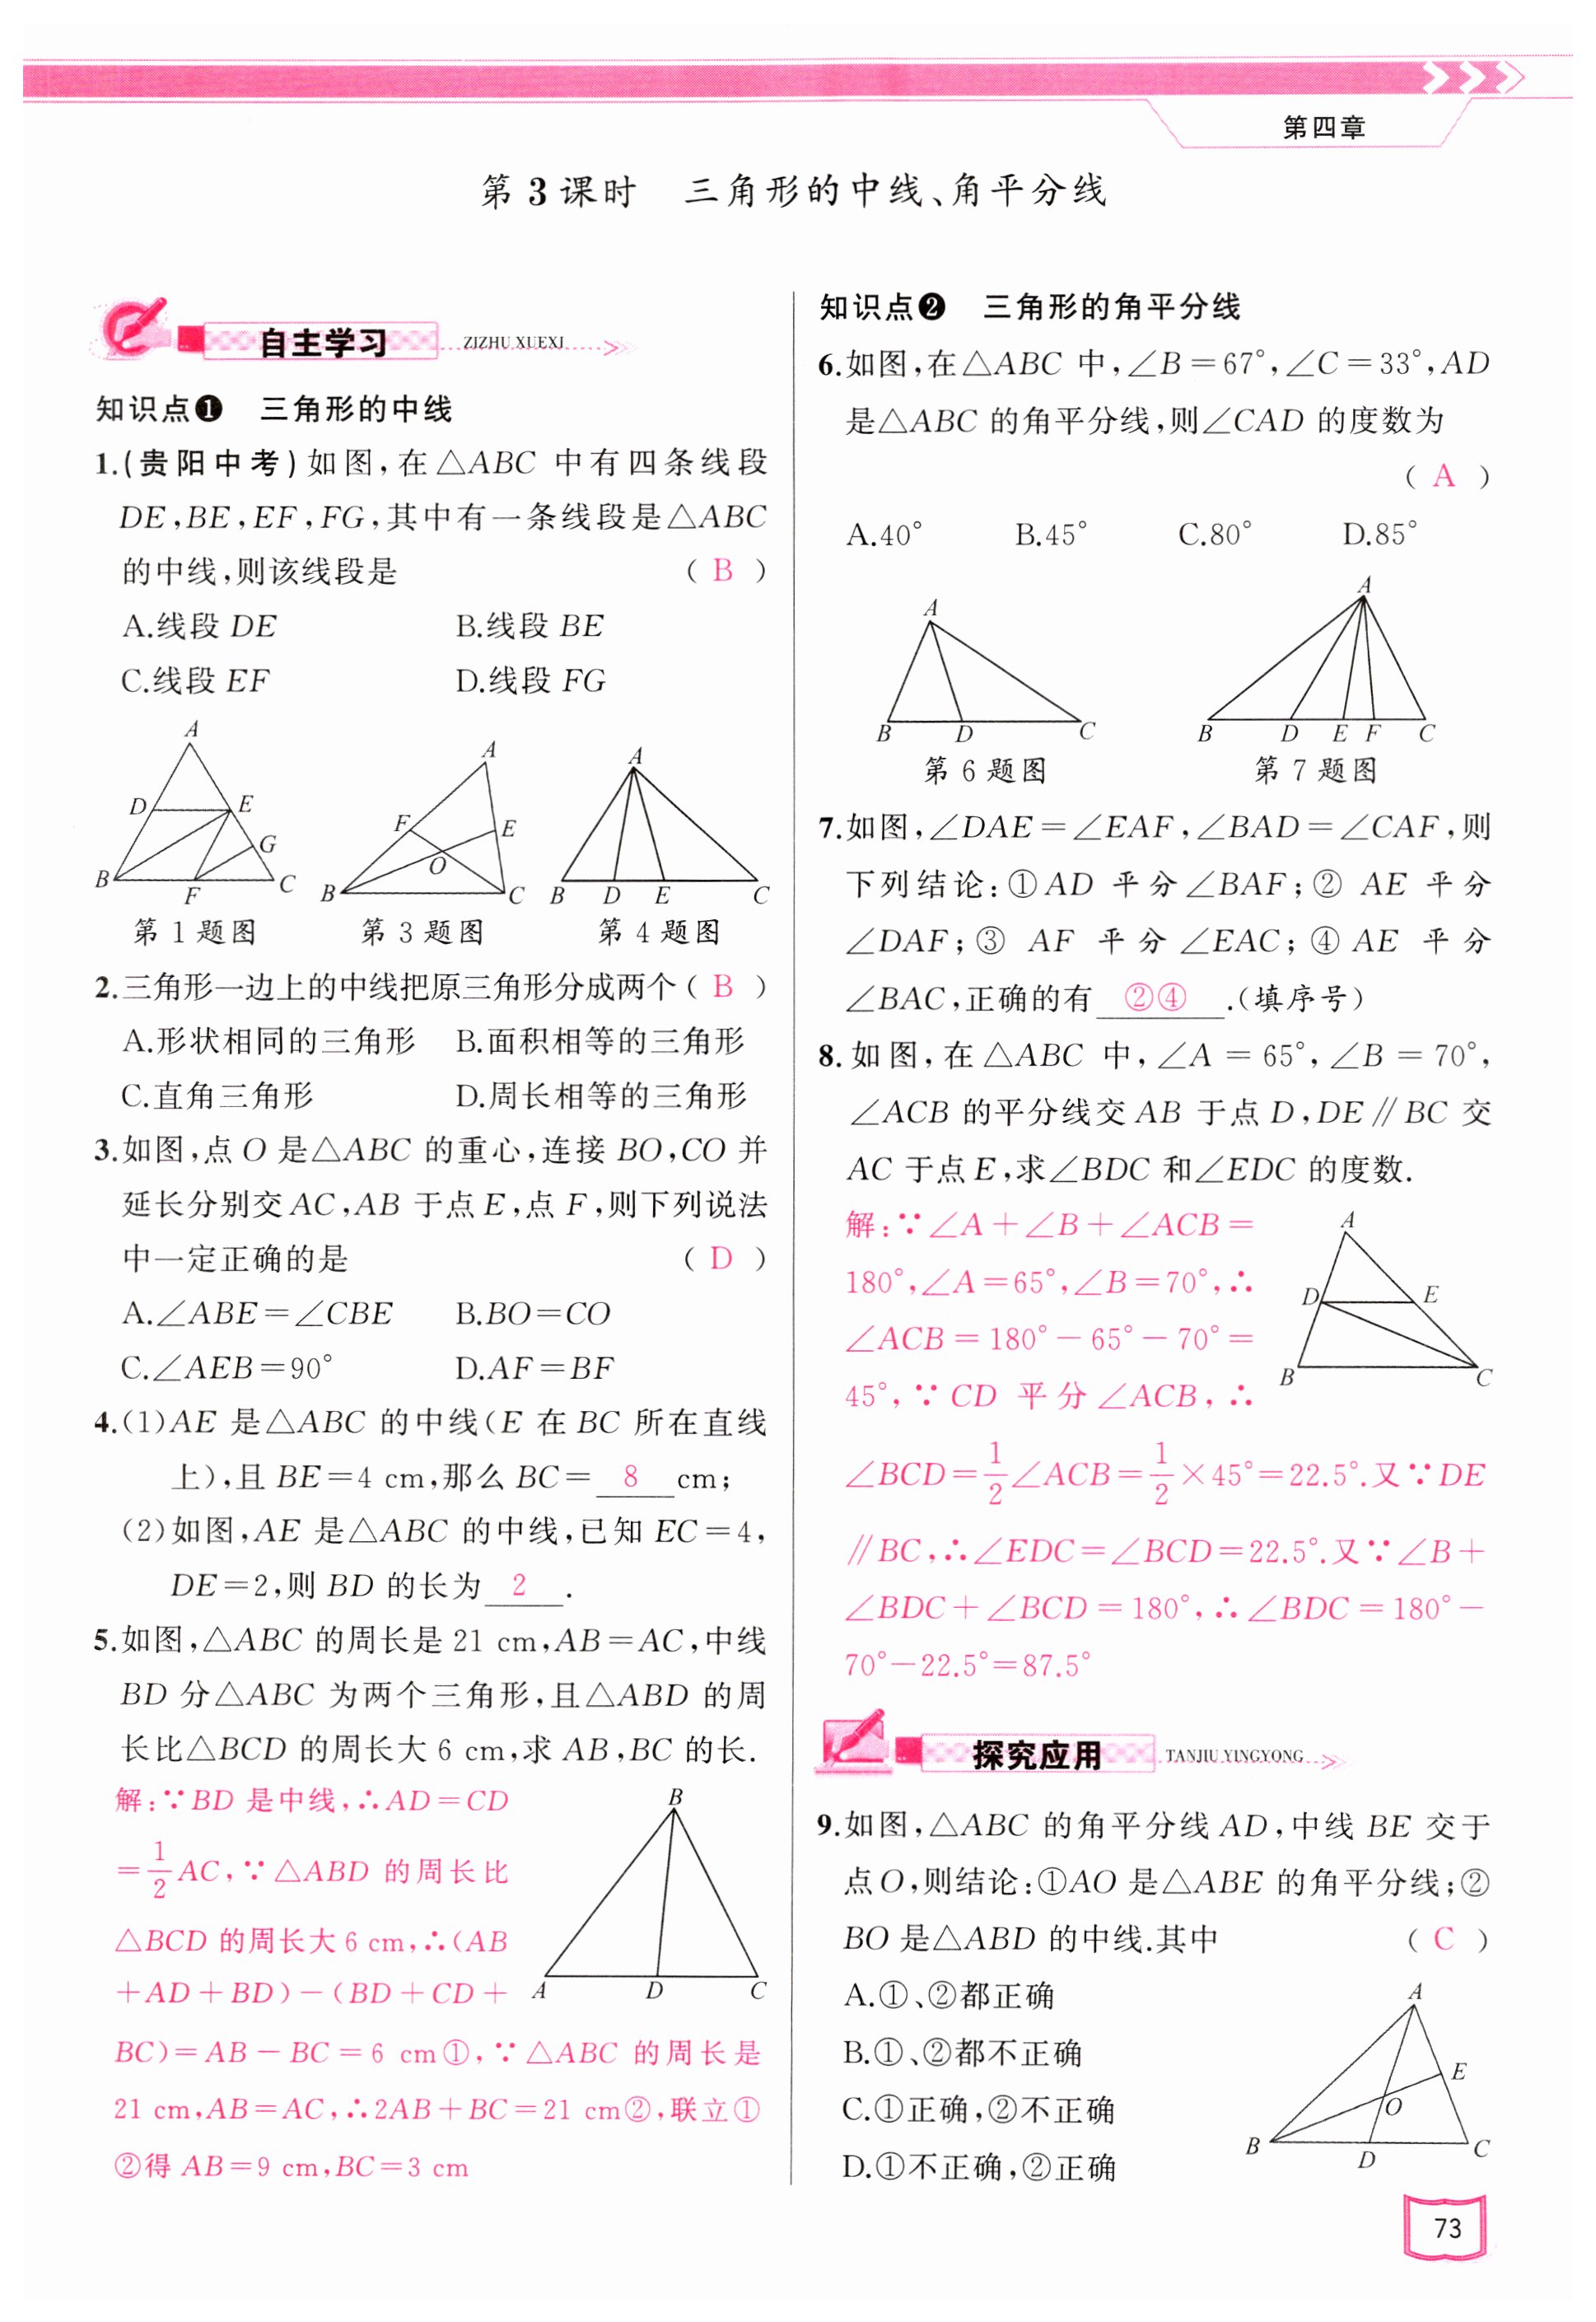 第四章
第3课时 三角形的中线、角平分线
自主学习 ZIZHU XUEXI
知识点❶ 三角形的中线
1.(贵阳中考)如图,在△ABC 中有四条线段
DE,BE,EF,FG,其中有一条线段是△ABC
的中线,则该线段是 ( B )
A.线段 DE B.线段 BE
C.线段 EF D.线段 FG
A
D E
G
B F C
A
F E
O
B C
A
B D E C
第 1 题图 第 3 题图 第 4 题图
2.三角形一边上的中线把原三角形分成两个( B )
A.形状相同的三角形 B.面积相等的三角形
C.直角三角形 D.周长相等的三角形
3.如图,点 O 是△ABC 的重心,连接 BO,CO 并
延长分别交 AC,AB 于点 E,点 F,则下列说法
中一定正确的是 ( D )
A.∠ABE=∠CBE B.BO=CO
C.∠AEB=90° D.AF=BF
4.(1)AE 是△ABC 的中线(E 在 BC 所在直线
上),且 BE=4 cm,那么 BC= 8 cm;
(2)如图,AE 是△ABC 的中线,已知 EC=4,
DE=2,则 BD 的长为 2 .
5.如图,△ABC 的周长是 21 cm,AB=AC,中线
BD 分△ABC 为两个三角形,且△ABD 的周
长比△BCD 的周长大 6 cm,求 AB,BC 的长.
解:∵BD 是中线,∴AD=CD
=1/2AC,∵△ABD 的周长比
△BCD 的周长大 6 cm,∴(AB
+AD+BD)-(BD+CD+
BC)=AB-BC=6 cm①,∵△ABC 的周长是
21 cm,AB=AC,∴2AB+BC=21 cm②,联立①
②得 AB=9 cm,BC=3 cm
B
A D C
知识点❷ 三角形的角平分线
6.如图,在△ABC 中,∠B=67°,∠C=33°,AD
是△ABC 的角平分线,则∠CAD 的度数为
( A )
A.40° B.45° C.80° D.85°
A
B D C
A
B D E F C
第 6 题图 第 7 题图
7.如图,∠DAE=∠EAF,∠BAD=∠CAF,则
下列结论:①AD 平分∠BAF;② AE 平分
∠DAF;③ AF 平分∠EAC;④AE 平分
∠BAC,正确的有 ②④ .(填序号)
8.如图,在△ABC 中,∠A=65°,∠B=70°,
∠ACB 的平分线交 AB 于点 D,DE∥BC 交
AC 于点 E,求∠BDC 和∠EDC 的度数.
解:∵∠A+∠B+∠ACB=
180°,∠A=65°,∠B=70°,∴
∠ACB=180°-65°-70°=
45°,∵CD 平分∠ACB,∴
∠BCD=1/2∠ACB=1/2×45°=22.5°.又∵DE
∥BC,∴∠EDC=∠BCD=22.5°.又∵∠B+
∠BDC+∠BCD=180°,∴∠BDC=180°-
70°-22.5°=87.5°
A
D E
B C
探究应用 TANJIU YINGYONG
9.如图,△ABC 的角平分线 AD,中线 BE 交于
点 O,则结论:①AO 是△ABE 的角平分线;②
BO 是△ABD 的中线.其中 ( C )
A.①、②都正确
B.①、②都不正确
C.①正确,②不正确
D.①不正确,②正确
A
E
O
B D C
73